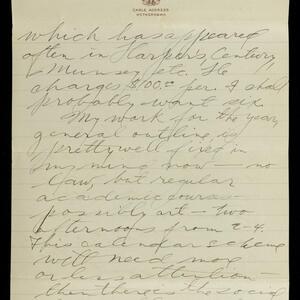 CABLE ADDRESS
which has appeared
often in Harper's, Century
Munsey etc. He
charges $100.00 per. I shall
probably want six.
My work for the year,
general outline, is
pretty well fixed in
my mind now — no
law, but regular
academic course
possibly art — two
afternoons from 2-4.
This calendar scheme
will need more
or less attention —
then there is the social